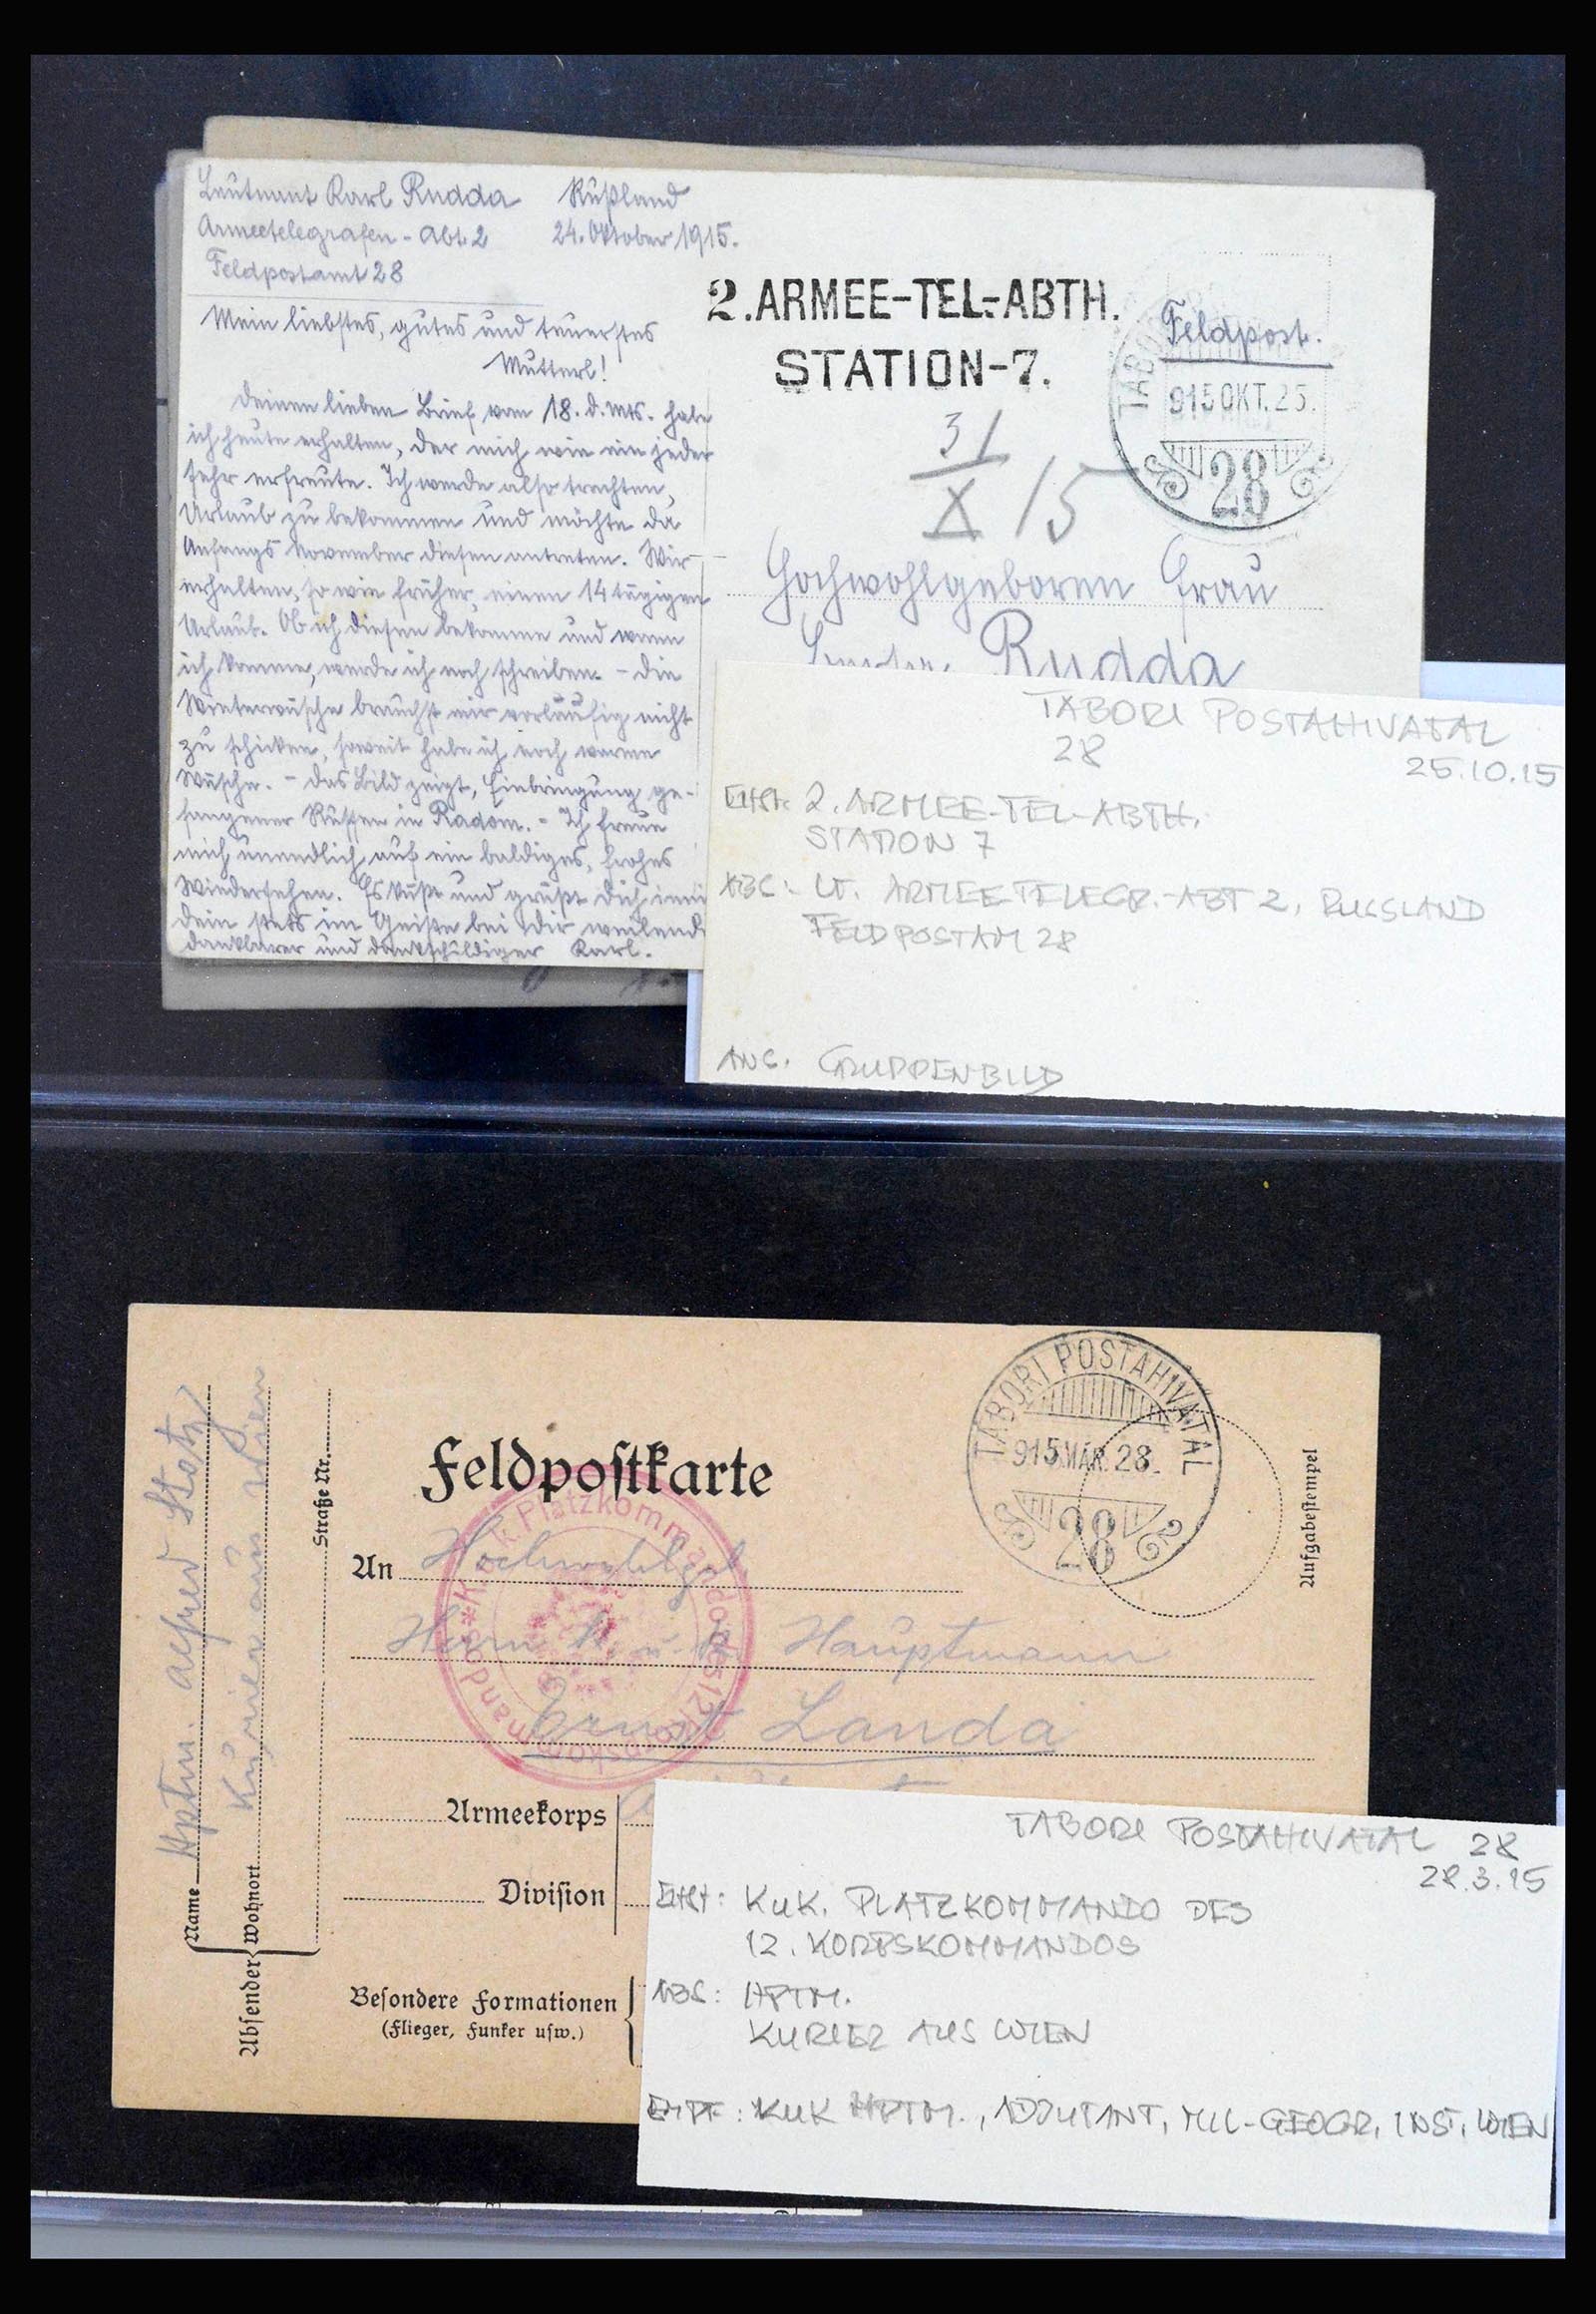 Leutnant Karl Rudda Rußland
Armeetelegrafen-Abt. 2 24. Oktober 1915.
Feldpostamt 28
Mein liebstes, gutes und teuerstes
Mutterl!
Deinen lieben Brief vom 18. d. Mts. habe
ich heute erhalten, der mich wie ein jeder
sehr erfreute. Ich werde also trachten,
Urlaub zu bekommen und möchte da
Anfangs November diesen antreten. Wir
erhalten, so wie früher, einen 14 tägigen
Urlaub. Ob ich diesen bekomme und wann
ich komme, werde ich noch schreiben. - Die
Winterwäsche brauchst mir vorläufig nicht
zu schicken, soweit habe ich noch warme
Wäsche. - Das Bild zeigt, Einbringung ge-
fangener Russen in Radom. - Ich freue
mich unendlich auf ein baldiges, frohes
Wiedersehen. Es küßt und grüßt Dich
Dein stets im Geiste bei Dir weilend
dankbarer und dankschuldiger Karl.
2.ARMEE-TEL-ABTH.
STATION-7.
Feldpost.
TABO
915 OKT. 25.
28
31/X/15
Hochwohlgeboren Frau
Rudda
TABORI POSTAHIVATAL
28
25.10.15
2. ARMEE-TEL-ABTH.
STATION 7
ABS: LT. ARMEETELEGR.-ABT 2, RUSSLAND
FELDPOSTAM 28
ANS. GRUPPENBILD
Feldpostkarte
TÁBORI POSTAHIVATAL
915 MÁR. 28.
28
Aufgabestempel
K.u.k. Platzkommando des 12. Korpskommandos
An Hochwohlgeb.
Herrn K. u. K. Hauptmann
Ernst Landa
Armeekorps
Division
Besondere Formationen
(Flieger, Funker usw.)
Straße Nr.
Absender
Name Hptm. Alfred Stotz
Wohnort Kurier aus Wien
TABORI POSTAHIVATAL 28
28.3.15
KuK. PLATZKOMMANDO DES
12. KORPSKOMMANDOS
ABS: HPTM.
KURIER AUS WIEN
EMPF: KUK HPTM., ADJUTANT, MIL-GEOGR. INST. WIEN